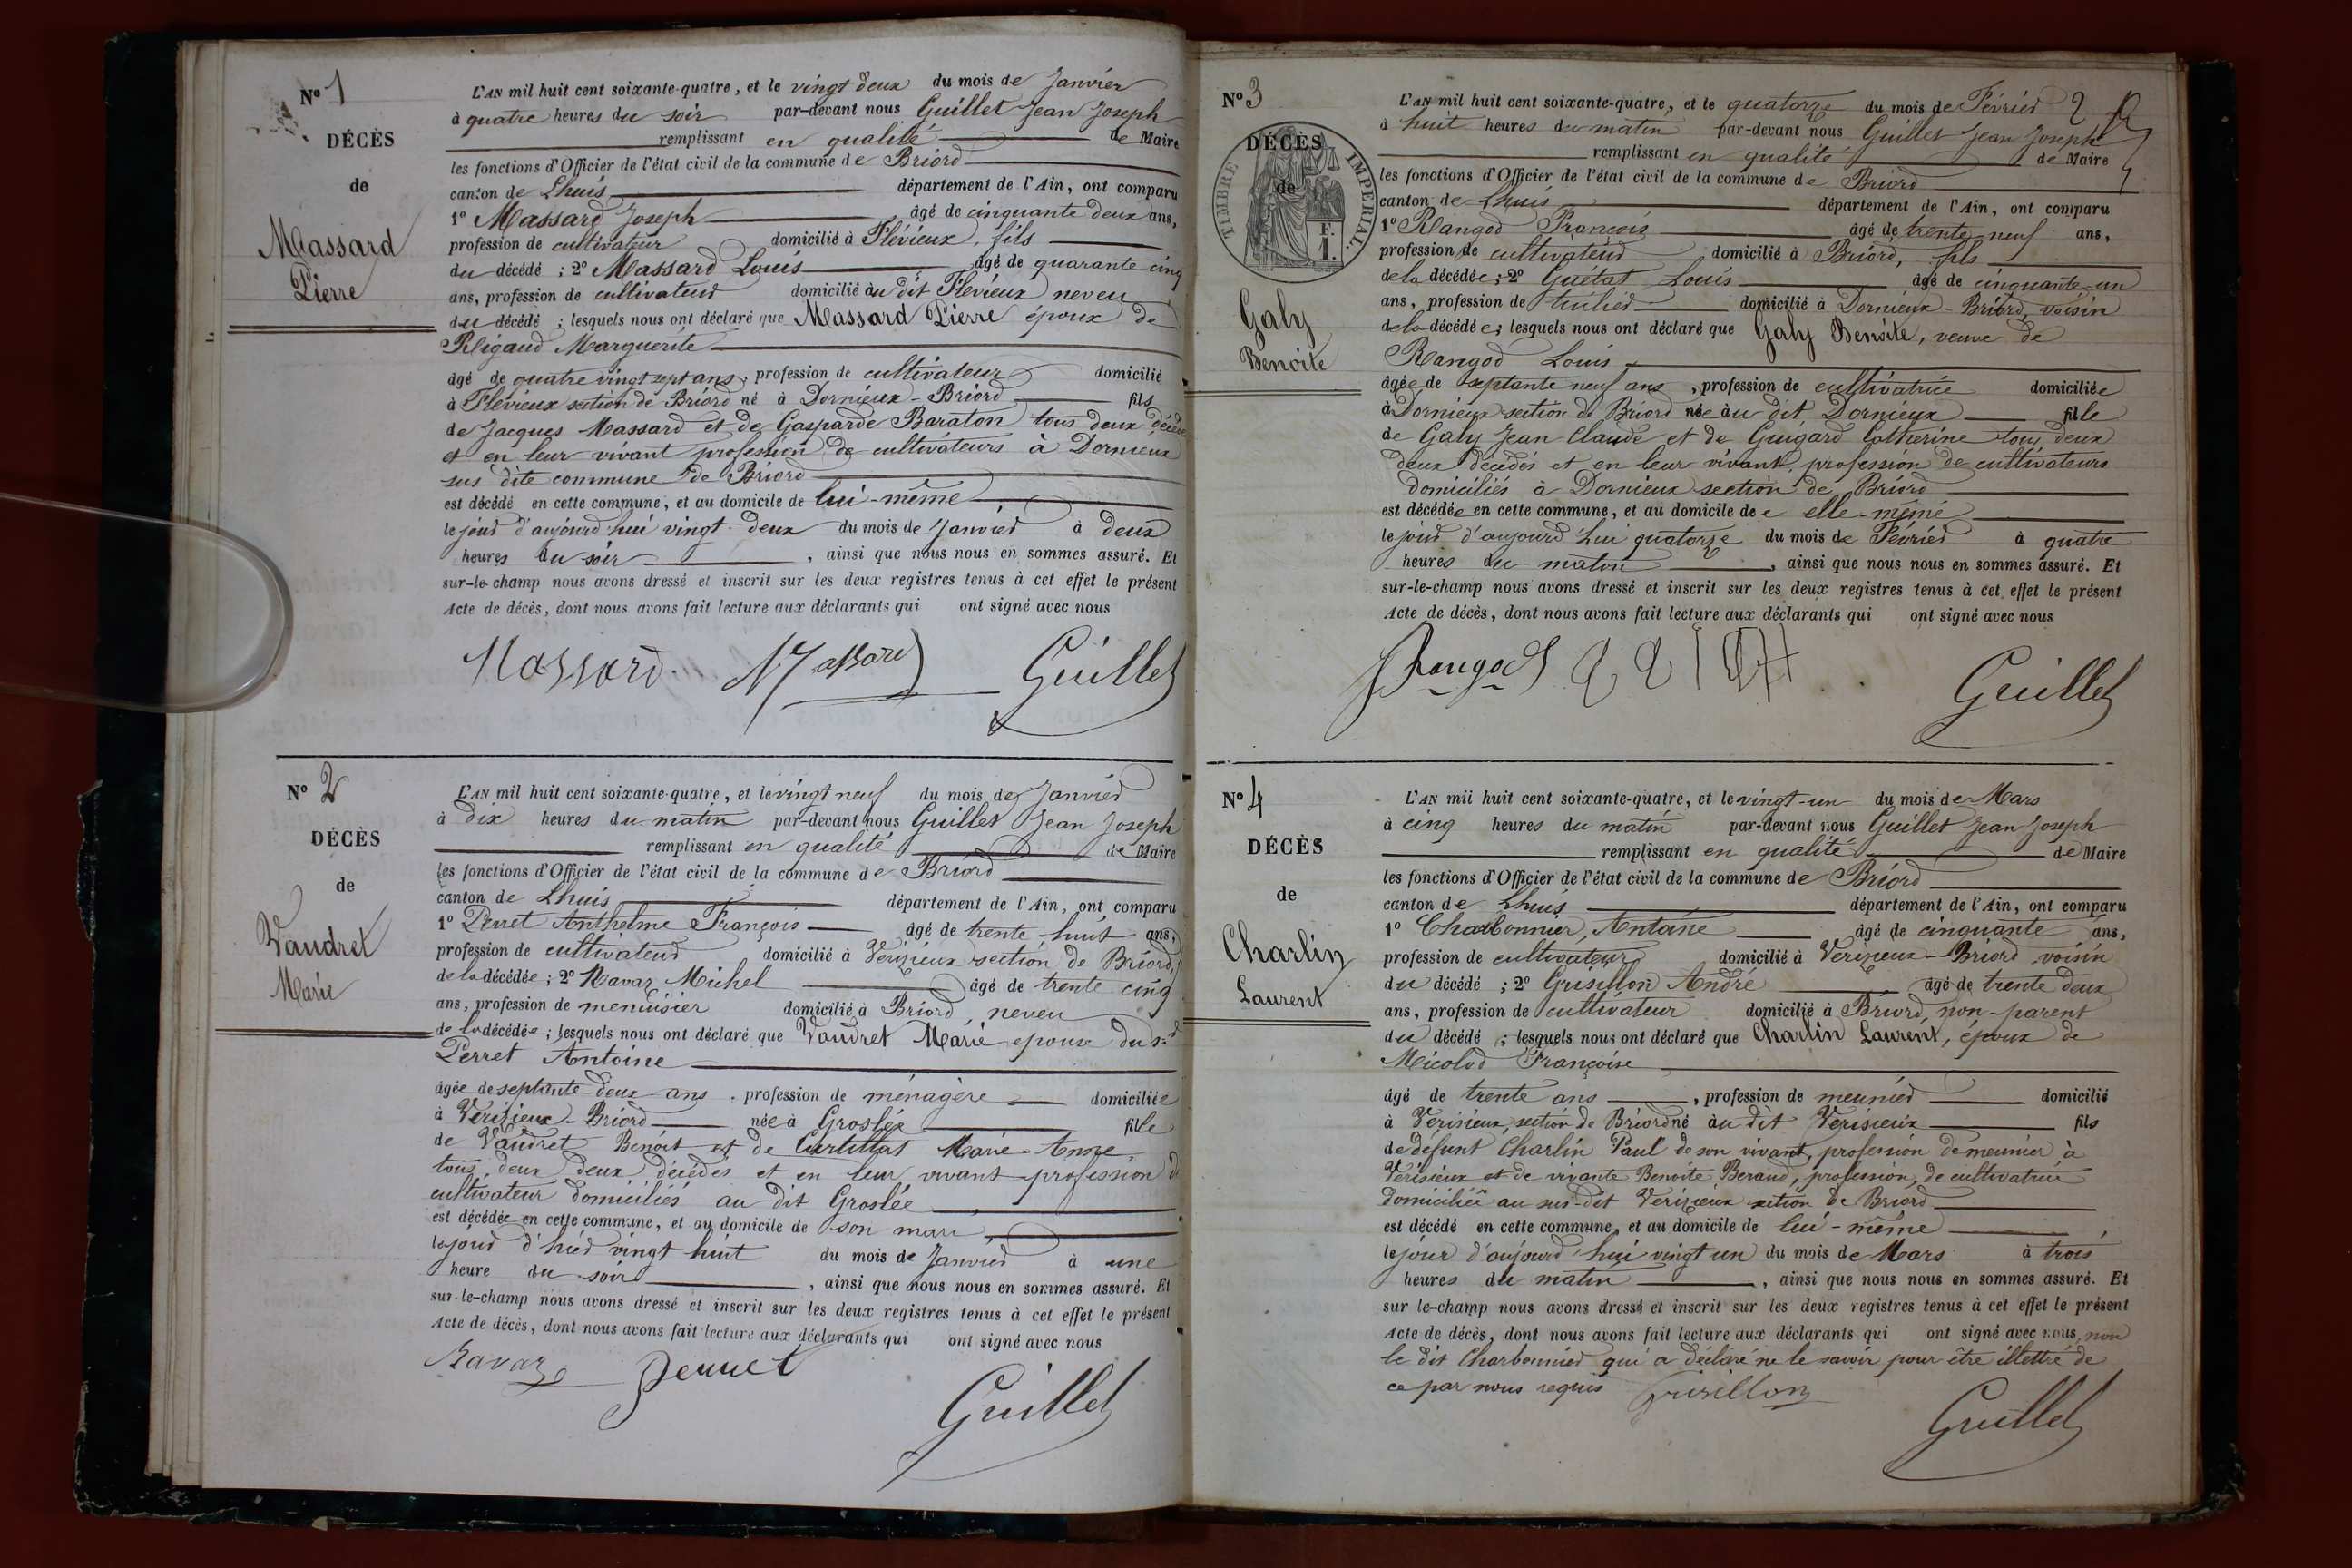 N° 1
DÉCÈS
de
Massard
Pierre
L'AN mil huit cent soixante-quatre, et le vingt deux du mois de Janvier
à quatre heures du soir par-devant nous Guillet Jean Joseph
remplissant en qualité de Maire
les fonctions d'Officier de l'état civil de la commune de Briord
canton de Lhuis département de l'Ain, ont comparu
1° Massard Joseph âgé de cinquante deux ans,
profession de cultivateur domicilié à Flévieux, fils
du décédé ; 2° Massard Louis âgé de quarante cinq
ans, profession de cultivateur domicilié au dit Flévieux neveu
du décédé ; lesquels nous ont déclaré que Massard Pierre époux de
Rigaud Marguerite
âgé de quatre vingt sept ans, profession de cultivateur domicilié
à Flévieux section de Briord né à Dornieux - Briord fils
de Jacques Massard et de Gasparde Baraton tous deux décédés
et en leur vivant profession de cultivateurs à Dornieux
sus dite commune de Briord
est décédé en cette commune, et au domicile de lui-même
le jour d'aujourd'hui vingt deux du mois de Janvier à deux
heures du soir, ainsi que nous nous en sommes assuré. Et
sur-le-champ nous avons dressé et inscrit sur les deux registres tenus à cet effet le présent
Acte de décès, dont nous avons fait lecture aux déclarants qui ont signé avec nous
Massard Massard Guillet
N° 2
DÉCÈS
de
Vaudret
Marie
L'AN mil huit cent soixante-quatre, et le vingt neuf du mois de Janvier
à dix heures du matin par-devant nous Guillet Jean Joseph
remplissant en qualité de Maire
les fonctions d'Officier de l'état civil de la commune de Briord
canton de Lhuis département de l'Ain, ont comparu
1° Perret Anthelme François âgé de trente-huit ans,
profession de cultivateur domicilié à Vérizieux section de Briord,
de la décédée ; 2° Navaz Michel âgé de trente cinq
ans, profession de menuisier domicilié à Briord, neveu
de la décédée ; lesquels nous ont déclaré que Vaudret Marie epouse du sr
Perret Antoine
âgée de septante deux ans, profession de ménagère domiciliée
à Vérizieux - Briord née à Groslée fille
de Vaudret Benoit et de Marie-Anne,
tous deux deux décédés et en leur vivant profession de
cultivateur domiciliés au dit Groslée
est décédée en cette commune, et au domicile de son mari,
le jour d'hier vingt huit du mois de Janvier à une
heure du soir, ainsi que nous nous en sommes assuré. Et
sur-le-champ nous avons dressé et inscrit sur les deux registres tenus à cet effet le présent
Acte de décès, dont nous avons fait lecture aux déclarants qui ont signé avec nous
Navaz Perret
Guillet
2
N° 3
TIMBRE IMPERIAL
F. 1.
DÉCÈS
de
Galy
Benoite
L'AN mil huit cent soixante-quatre, et le quatorze du mois de Février
à huit heures du matin par-devant nous Guillet Jean Joseph
remplissant en qualité de Maire
les fonctions d'Officier de l'état civil de la commune de Briord
canton de Lhuis département de l'Ain, ont comparu
1° Rangod François âgé de trente-neuf ans,
profession de cultivateur domicilié à Briord, fils
de la décédée ; 2° Guétat Louis âgé de cinquante-un
ans, profession de tuilier domicilié à Dornieux - Briord, voisin
de la décédée ; lesquels nous ont déclaré que Galy Benoite, veuve de
Rangod Louis
âgée de septante neuf ans, profession de cultivatrice domiciliée
à Dornieux section de Briord née au dit Dornieux fille
de Galy Jean Claude et de Guigard Catherine tous deux
deux décédés et en leur vivant, profession de cultivateurs
domiciliés à Dornieux section de Briord
est décédée en cette commune, et au domicile de elle-même
le jour d'aujourd'hui quatorze du mois de Février à quatre
heures du matin, ainsi que nous nous en sommes assuré. Et
sur-le-champ nous avons dressé et inscrit sur les deux registres tenus à cet effet le présent
Acte de décès, dont nous avons fait lecture aux déclarants qui ont signé avec nous
Rangod
Guillet
N° 4
DÉCÈS
de
Charlin
Laurent
L'AN mil huit cent soixante-quatre, et le vingt-un du mois de Mars
à cinq heures du matin par-devant nous Guillet Jean Joseph
remplissant en qualité de Maire
les fonctions d'Officier de l'état civil de la commune de Briord
canton de Lhuis département de l'Ain, ont comparu
1° Charbonnier, Antoine âgé de cinquante ans,
profession de cultivateur domicilié à Verizieux - Briord voisin
du décédé ; 2° Grisillon André âgé de trente deux
ans, profession de cultivateur domicilié à Briord, non-parent
du décédé ; lesquels nous ont déclaré que Charlin Laurent, époux de
Micolod Françoise
âgé de trente ans, profession de meunier domicilié
à Vérisieux, section de Briord né au dit Verisieux fils
de défunt Charlin Paul de son vivant, profession de meunier à
Vérisieux et de vivante Benoite Beraud, profession, de cultivatrice
domiciliée au sus-dit Verizieux section de Briord
est décédé en cette commune, et au domicile de lui-même,
le jour d'aujourd'hui vingt un du mois de Mars à trois
heures du matin, ainsi que nous nous en sommes assuré. Et
sur le-champ nous avons dressé et inscrit sur les deux registres tenus à cet effet le présent
Acte de décès, dont nous avons fait lecture aux déclarants qui ont signé avec nous, non
le dit Charbonnier qui a déclaré ne le savoir pour être illettré de
ce par nous requis Grisillon
Guillet